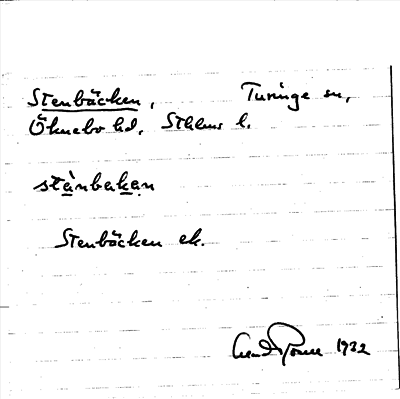 Stenbäcken, Turinge sn,
Öknebo hd, Sthlms l.
stä̀nbakan
Stenbäcken ek.
1932